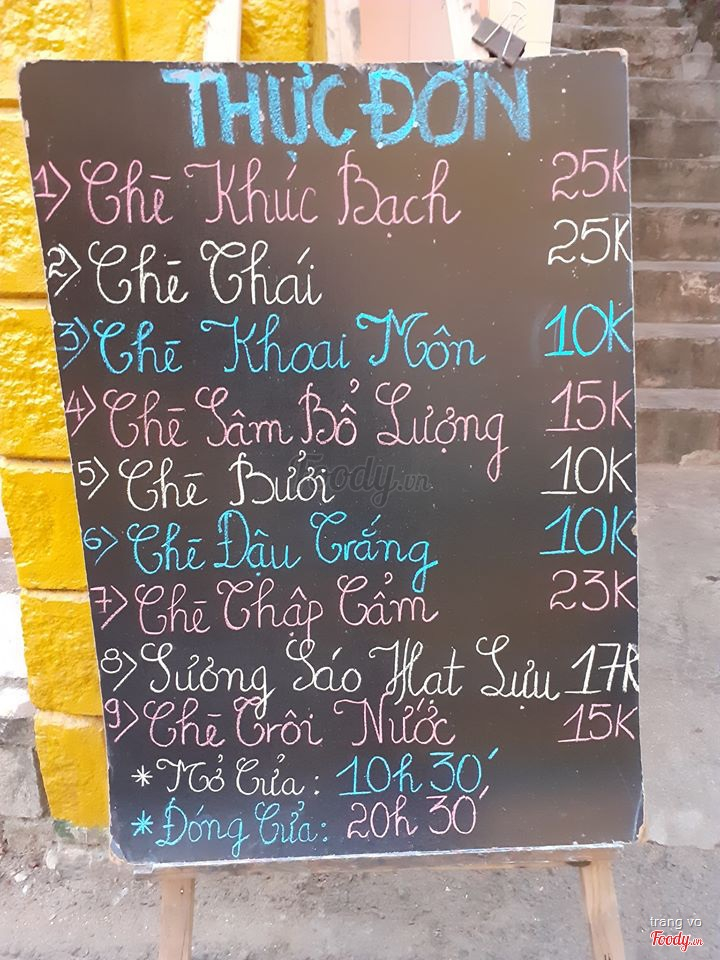 THỰC ĐƠN
1> Chè Khúc Bạch 25K
2> Chè Thái 25K
3> Chè Khoai Môn 10K
4> Chè Sâm Bổ Lượng 15K
5> Chè Bưởi 10K
6> Chè Đậu Trắng 10K
7> Chè Thập Cẩm 23K
8> Sương Sáo Hạt Lựu 17K
9> Chè Trôi Nước 15K
* Mở Cửa: 10h 30'
* Đóng Cửa: 20h 30'
Foody.vn
trang vo
Foody.vn